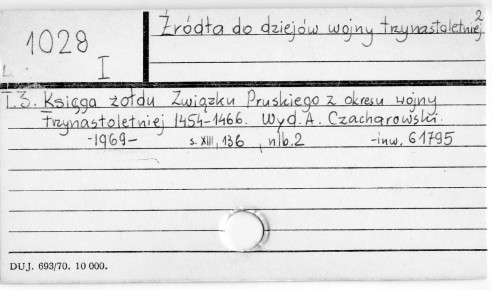 2
1028 I
Źródła do dziejów wojny trzynastoletniej
T.3. Księga żołdu Związku Pruskiego z okresu wojny
trzynastoletniej 1454-1466. Wyd. A. Czacharowski.
-1969- s. XIII, 136, nlb. 2 -inw. 61795
DUJ. 693/70. 10 000.